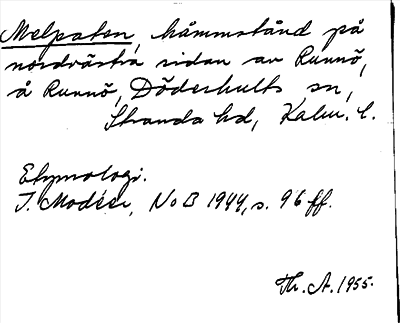 Melpaten, håmmstånd på
nordvästra sidan av Runnö,
å Runnö, Döderhults sn,
Stranda hd, Kalm. l.
Etymologi.
I. Modéer, NoB 1944, s. 96 ff.
Th. A. 1955.